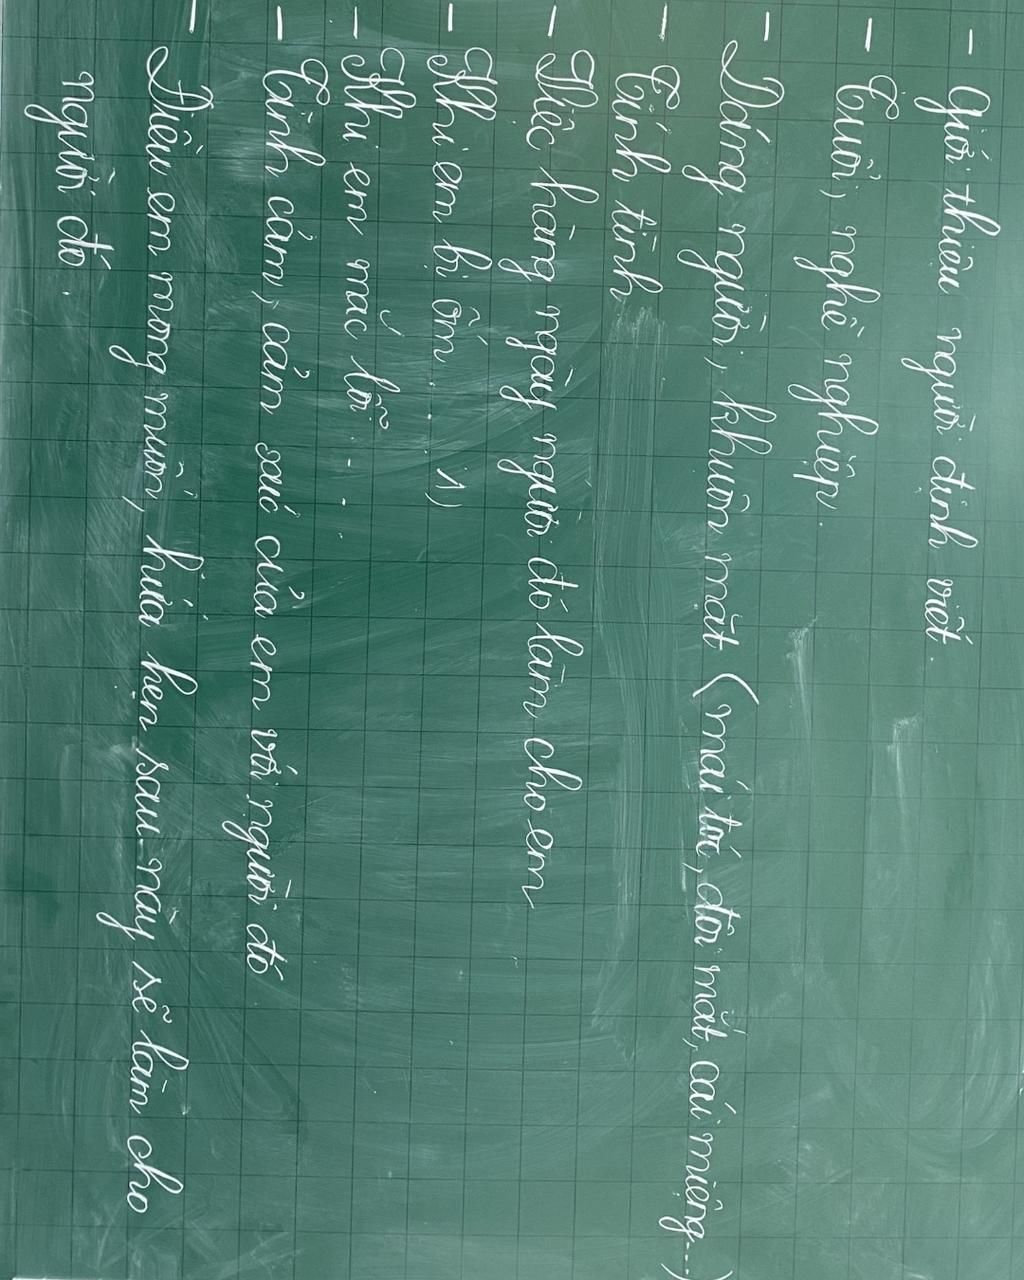 - Giới thiệu người định viết.
- Tuổi, nghề nghiệp.
- Dáng người, khuôn mặt (mái tóc, đôi mắt, cái miệng...)
- Tính tình
- Việc hàng ngày người đó làm cho em
- Khi em bị ốm...1)
- Khi em mắc lỗi...
- Tình cảm, cảm xúc của em với người đó
- Điều em mong muốn, hứa hẹn sau này sẽ làm cho
người đó.